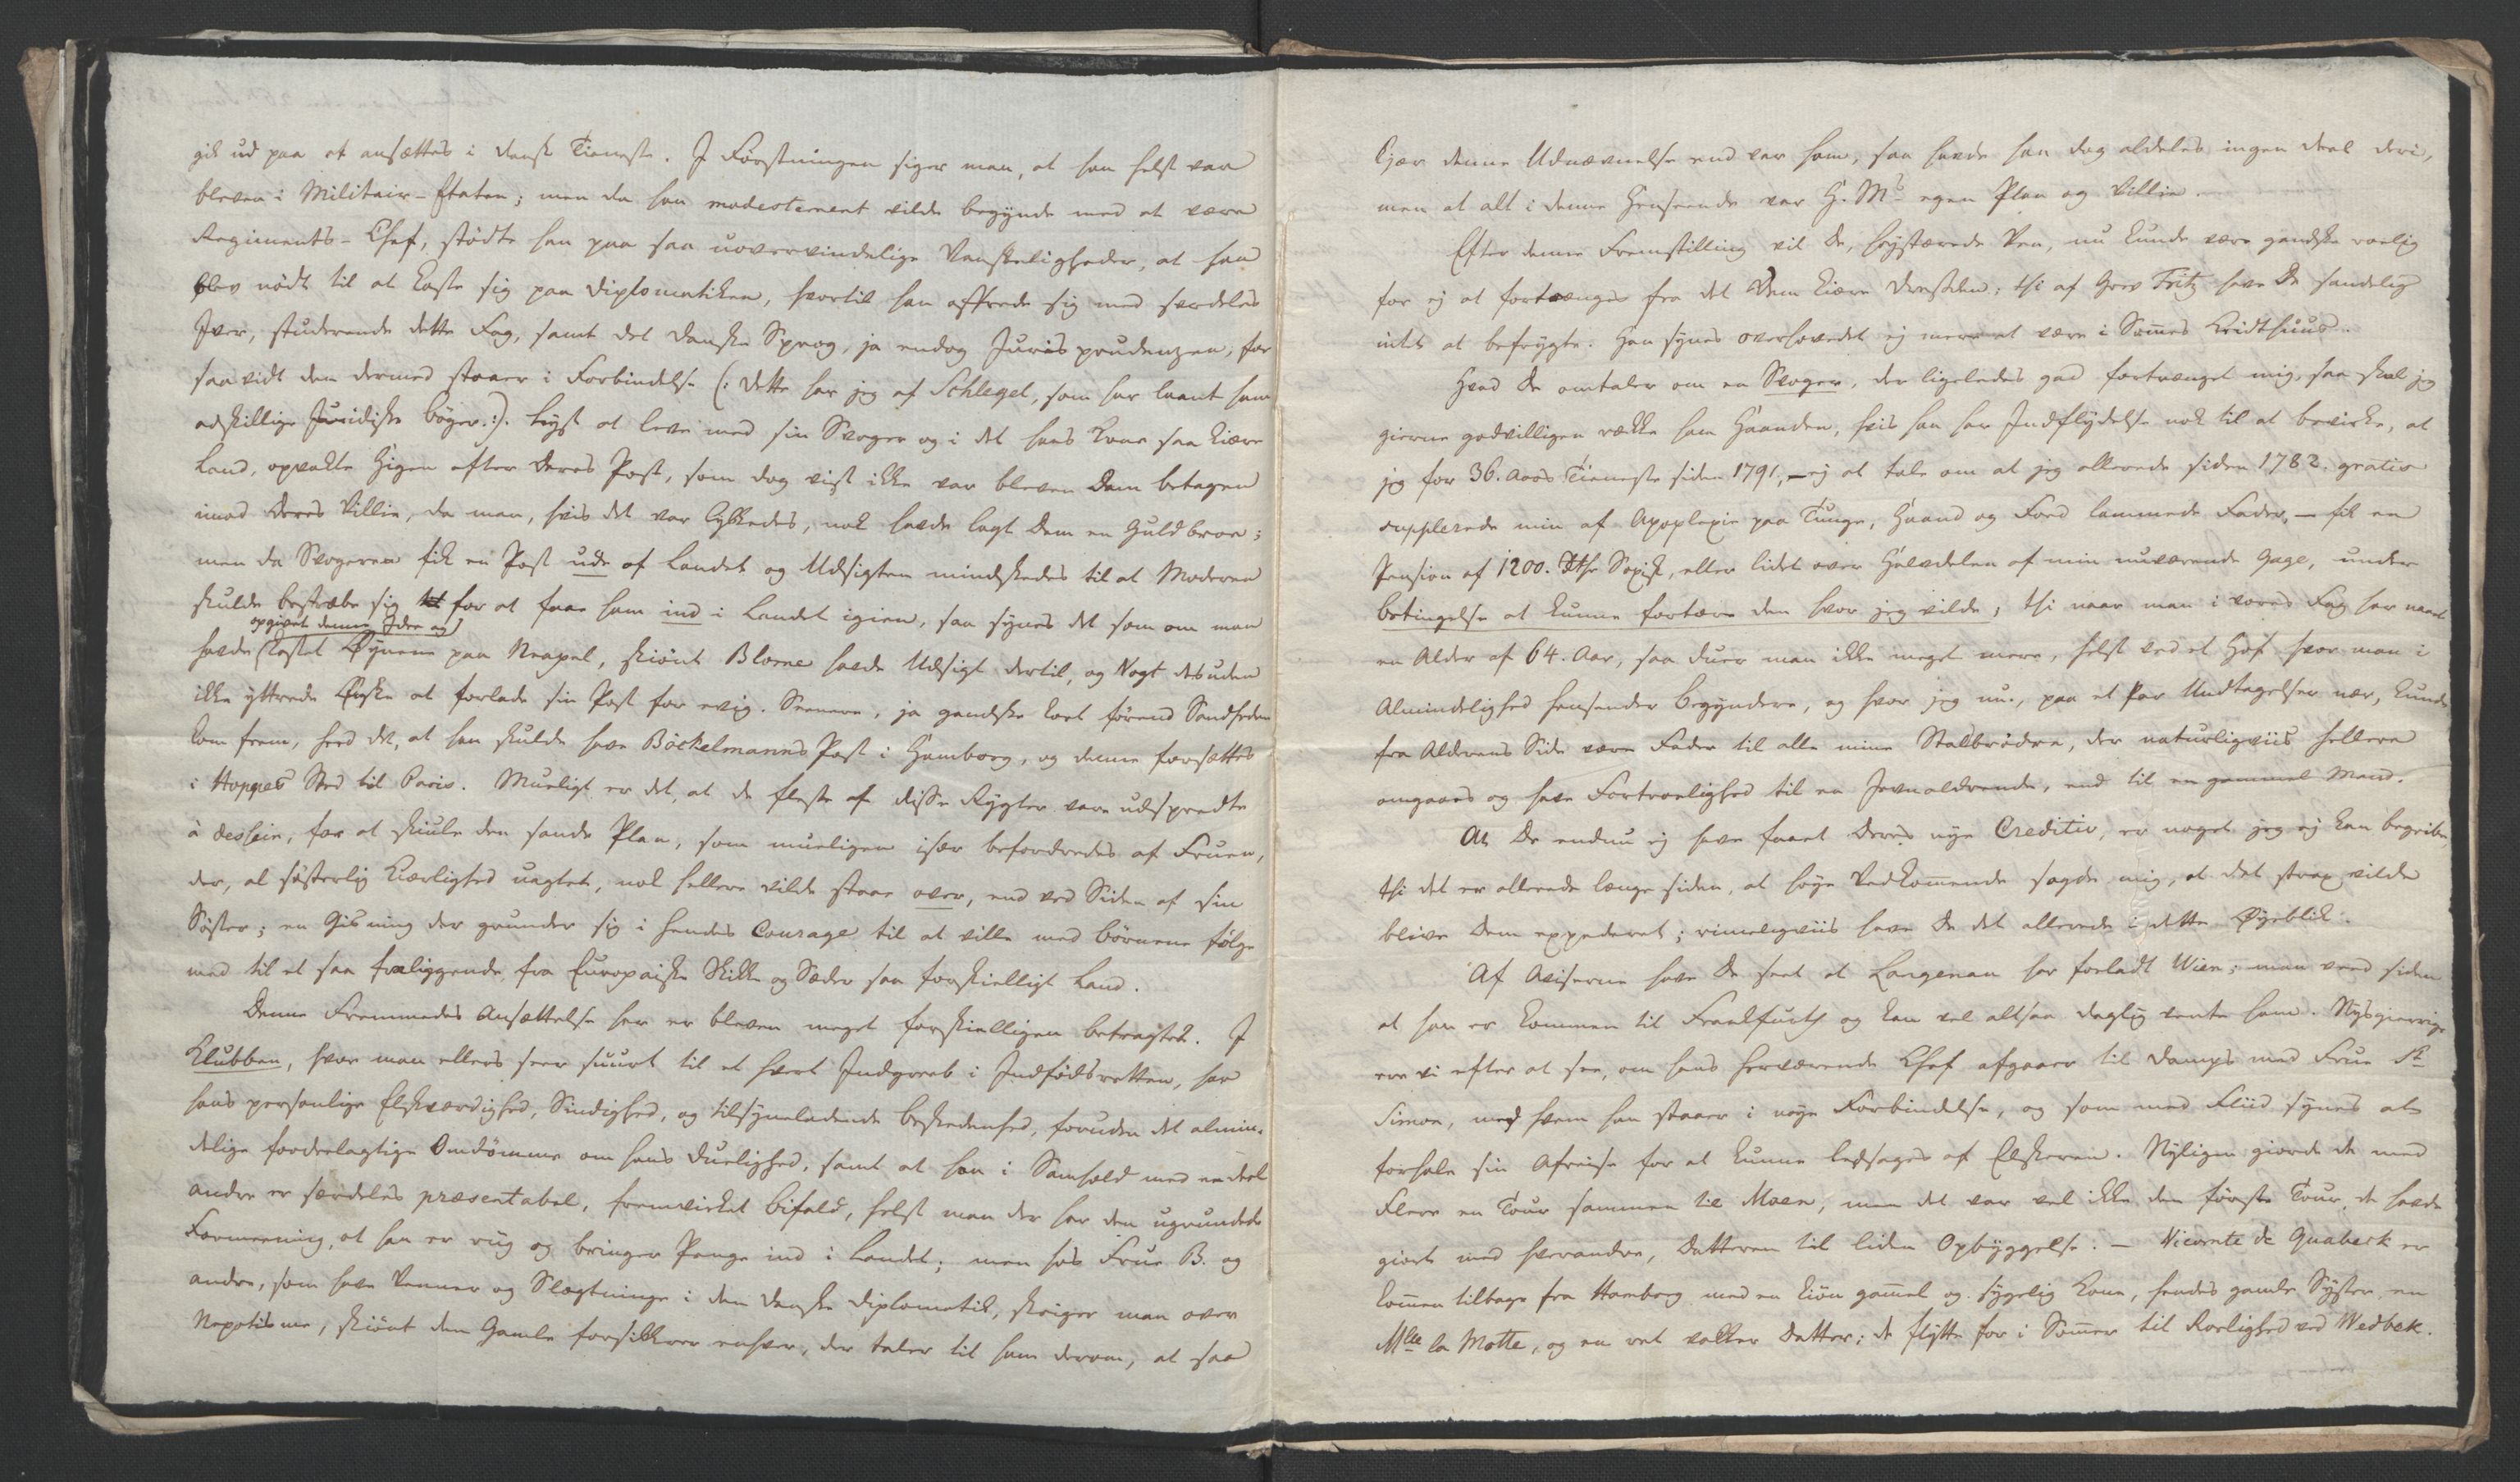 gik ud paa at ansættes i dansk Tieneste. I Förstningen siger man, at han helst var
bleven i Militair-Etaten; men da han modestement vilde begynde med at være
Regiments-Chef, stödte han paa saa uovervindelige Vanskeligheder, at han
blev nödt til at kaste sig paa Diplomatiken, hvortil han offrede sig med særdeles
Iver, studerende dette Fag, samt det danske Sprog, ja endog Jurisprudenzen, for
saavidt den dermed staaer i Forbindelse (: dette har jeg af Schlegel, som har laant ham
adskillige Juridiske böger.:). Lyst at leve med sin Svoger og i det hans Kone saa kiære
Land, opvakte Higen efter Deres Post, som dog vist ikke var bleven Dem betagen
imod Deres Villie, da man, hvis det var lykkedes, nok havde lagt Dem en Guldbroe;
men da Svogeren fik en Post ude af Landet og Udsigten mindskedes til at Moderen
skulde bestræbe sig for at faae ham ind i Landet igien, saa synes det som om man
opgivet denne Idee og
havde kastet Öynene paa Neapel, skiönt Blome havde Udsigt dertil, og Vogt desuden
ikke yttrede Önske at forlade sin Post for evig. Seenere, ja gandske kort förend Sandheden
kom frem, hed det, at han skulde have Böckelmanns Post i Hamborg, og denne forsættes
i Hoppes Sted til Paris. Mueligt er det, at de fleste af disse Rygter vare udspredte
à dessein, for at skiule den sande Plan, som mueligen især befordredes af Fruen,
der, al södsterlig Kiærlighed uagtet, nok hellere vilde staae over, end ved Siden af sin
Söster; en Gisning der grunder sig i hendes Courage til at ville med börnene fölge
med til et saa fraliggende, fra Europaiske Skikke og Sæder saa forskielligt Land.
Denne Fremmedes Ansættelse her er bleven meget forskielligen betragtet. I
Klubben, hvor man ellers seer suurt til et hvert Indgreb i Indfödsretten, har
hans personlige Elskværdighed, Sindighed, og tilsyneladende beskedenhed, foruden det almin-
delige fordeelagtige Omdömme om hans Duelighed, samt at han i Samhold med en deel
andre er særdeles præsentabel, fremvirket bifald, helst man der har den ugrundede
Formeening, at han er riig og bringer Penge ind i Landet; men hos Frue B. og
andre, som have Venner og Slægtninge i den danske Diplomatik, skriger man over
Nepotisme, skiönt den Gamle forsikkrer enhver, der taler til ham derom, at saa
kjær denne Udnævnelse end var ham, saa havde han dog aldeles ingen deel deri,
men at alt i denne Henseende var H. Ms egen Plan og Villie.
Efter denne Fremstilling vil De, höystærede Ven, nu kunde være gandske roelig
for ej at fortrænges fra det Dem kiære Dresden; thi af Grev Fritz have De sandelig
intet at befrygte. Han synes overhovedet ej mere at være i Sammes Kridthuus.
Hvad De omtaler om en Svoger, der ligeledes gad fortrænget mig, saa skal jeg
gierne godvilligen række ham Haanden, hvis han har Indflydelse nok til at bevirke, at
jeg for 36. Aars Tieneste siden 1791, – ej at tale om at jeg allerede siden 1782. gratis
supplerede min af Apoplexie paa Tunge, Haand og Foed lammede Fader, – fik en
Pension af 1200. Rthr Species, eller lidet over Halvdelen af min nuværende Gage, under
betingelse at kunne fortære den hvor jeg vilde; thi naar man i vores Fag har naaet
en Alder af 64. Aar, saa duer man ikke meget mere, helst ved et Hof hvor man i
Almindelighed hensender begyndere, og hvor jeg nu, paa et Par Undtagelser nær, kunde
fra Alderens Side være Fader til alle mine Stalbrödre, der naturligviis hellere
omgaaes og have Fortroelighed til en Jevnaldrende, end til en gammel Mand.
At De endnu ej have faaet Deres nye Creditiv, er noget jeg ej kan begribe
thi det er allerede længe siden, at höye Vedkommende sagde mig, at det strax vilde
blive Dem expederet; rimeligviis have De det allerede i dette Öyeblik.
Af Aviserne have De seet at Langenau har forladt Wien; man veed siden
at han er kommen til Frankfurth og kan vel altsaa daglig vente ham. Nysgierrige
ere vi efter at see, om hans herværende Chef afgaaer til Damps med Frue St
Simon, med hvem han staaer i nöye Forbindelse, og som med Fliid synes at
forhale sin Afreise for at kunne ledsages af Elskeren. Nyligen giorde de med
Flere en Tour sammen til Moen, men det var vel ikke den förste Tour, de havde
giort med hverandre, Datteren til liden Opbyggelse. – Vicomte de Quabeck er
kommen tilbage fra Hamborg med en kiön gammel og sygelig Kone, hendes gamle Syster, en
Mlle la Motte, og en ret vakker Datter; de flytte for i Sommer til Rolighed ved Wedbek.